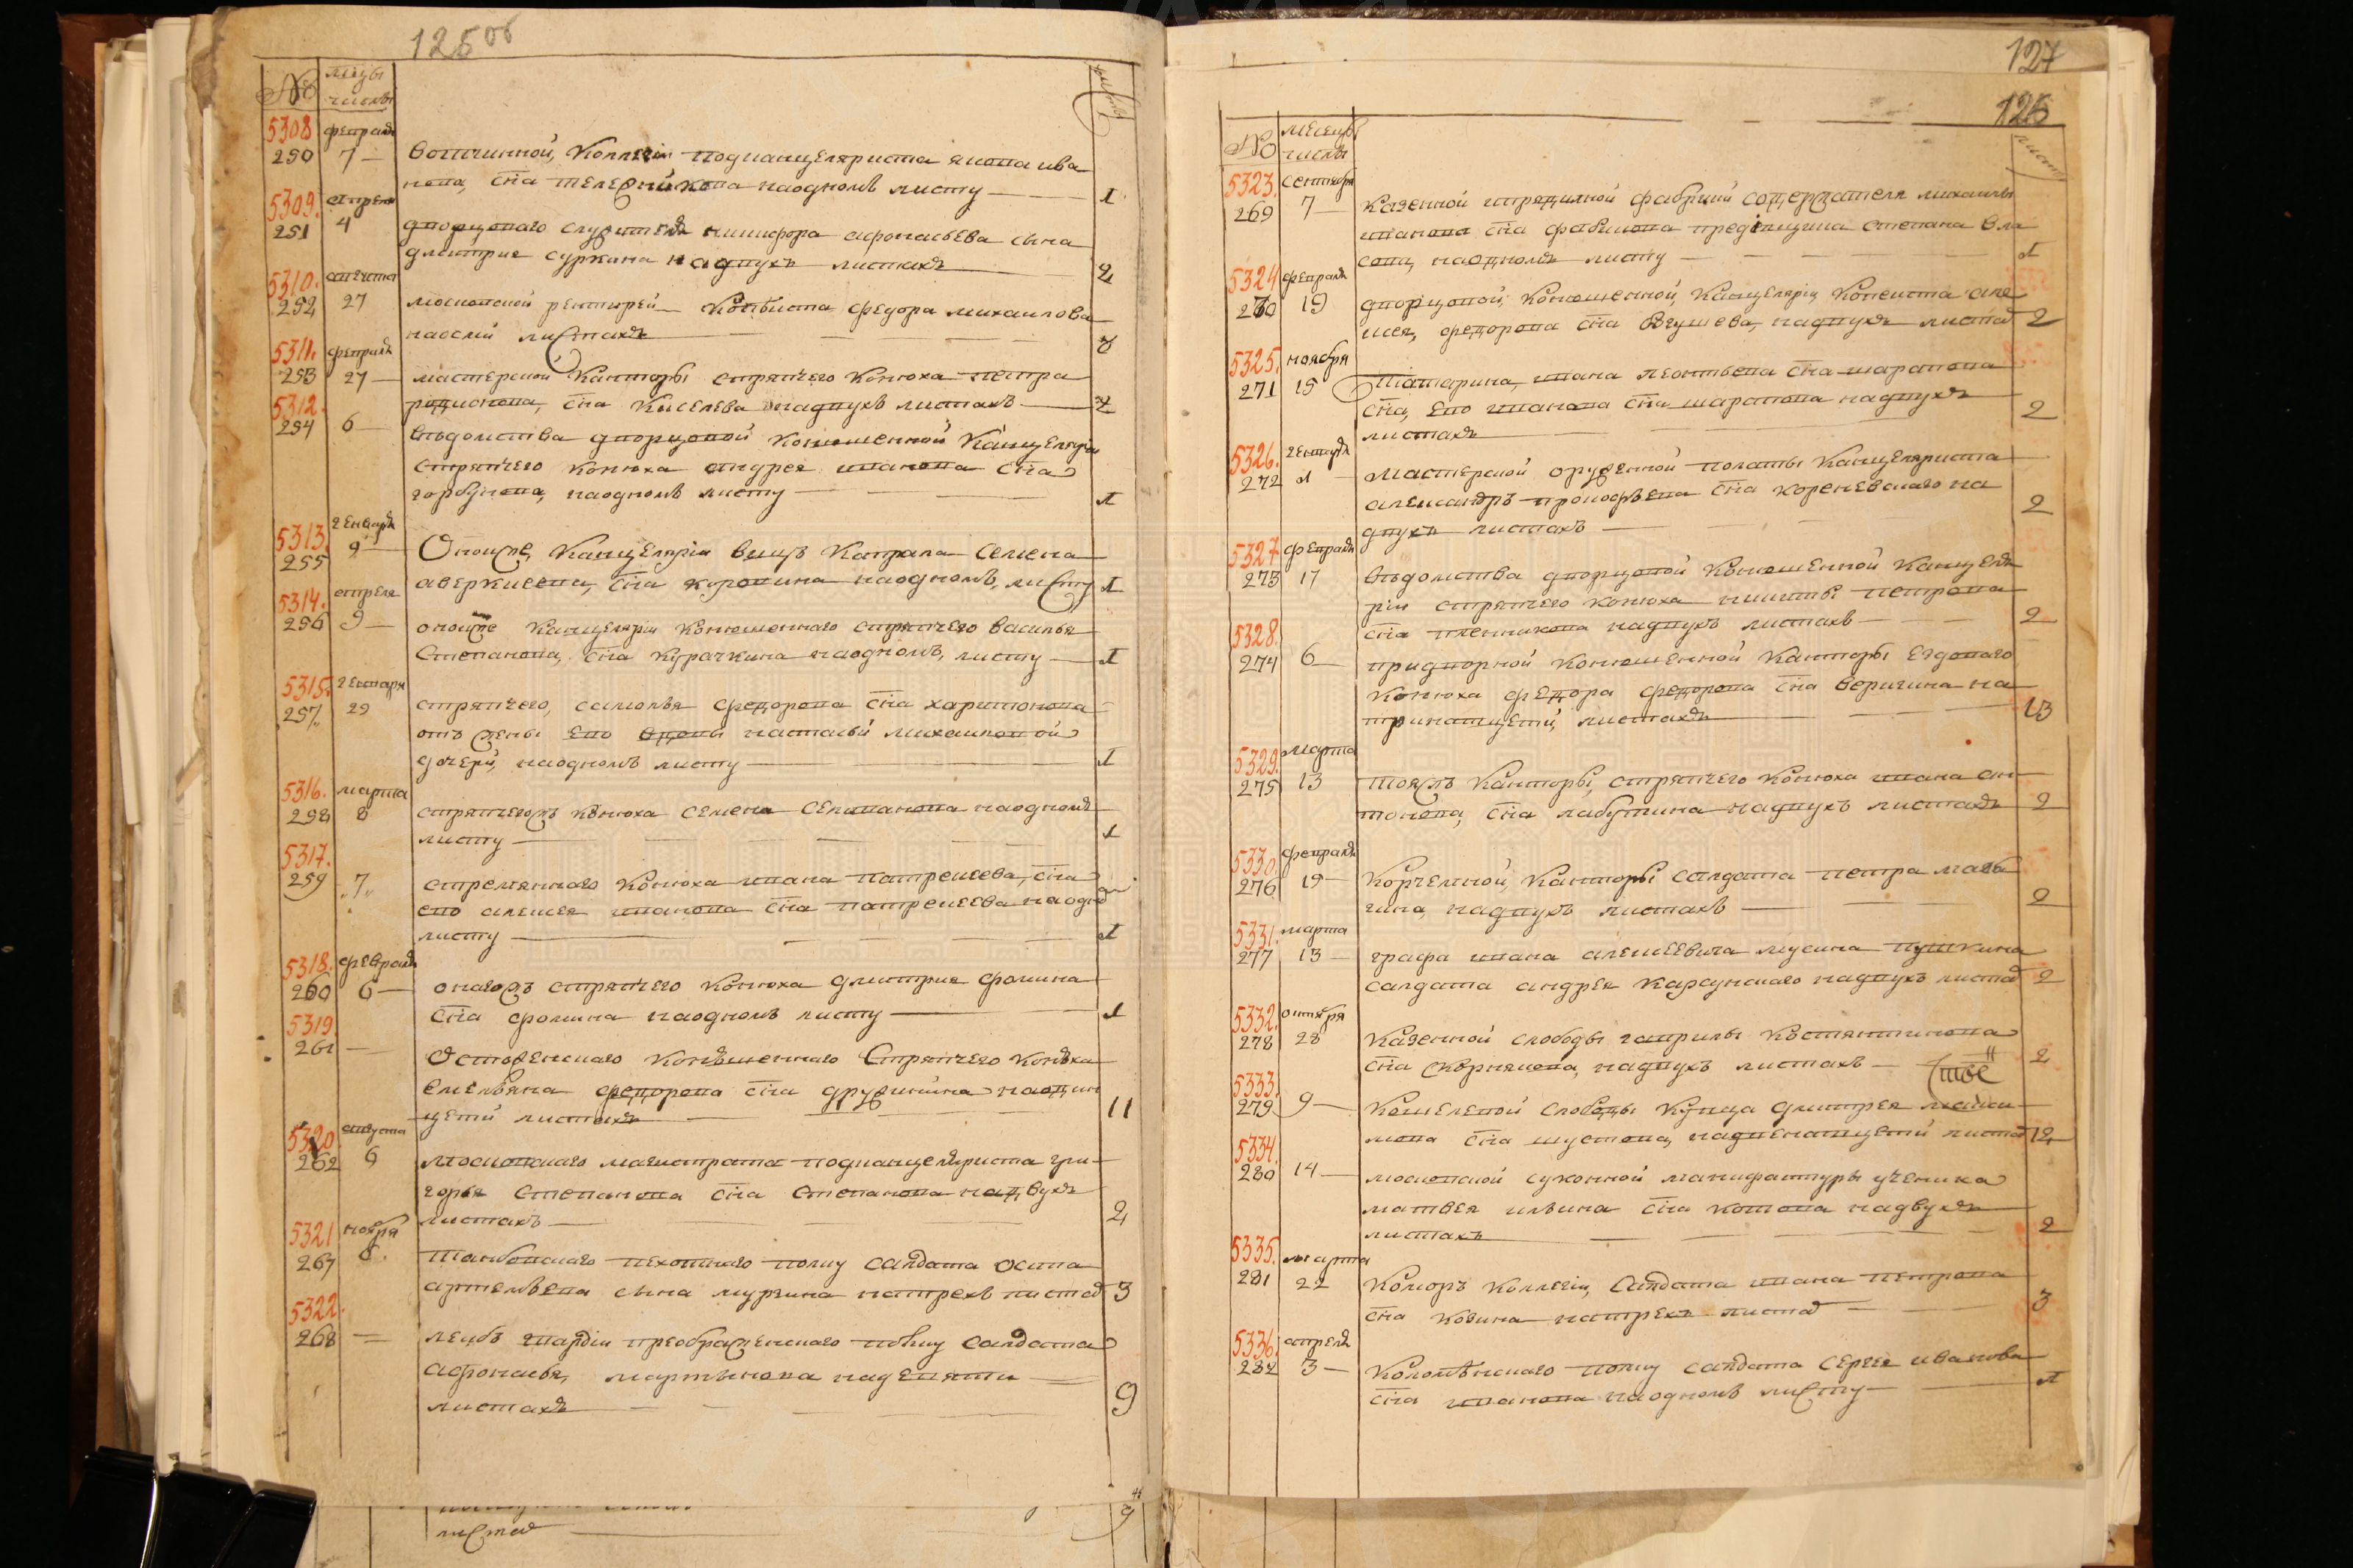 125 об
№
мцы
числы
листы
5308
февраля
250
7
вотчинной коллегии подканцеляриста якова ива
нова сна телесникова на одномъ листу
1
5309.
апреля
251
4
дворцоваго служителя никифора афонасьева сына
дмитрия суркина на двухъ листахъ
2
5310.
августа
252
27
московской рентереи копеиста федора михаилова
на осми листахъ
8
5311.
февраля
253
27
мастерской канторы стряпчего конюха петра
родионова сна киселева на двухъ листахъ
2
5312.
254
6
ведомства дворцовой конюшенной канцелярии
стряпчего конюха андрея иванова сна
горбунова на одномъ листу
1
5313.
генваря
255
9
оной же канцелярии
семена
аверкиева сна
на одномъ листу
1
5314.
апреля
256
9
оной же канцелярии конюшенного стряпчего василья
степанова сна курачкина на одномъ листу
1
5315.
генваря
257
29
стряпчего
федорова сна харитонова
отъ жены ево вдовы настасьи михаиловой
дочери на одномъ листу
1
5316.
марта
258
8
стряпчегожъ конюха семена селиванова на одномъ
листу
1
5317.
259
7
стремянного конюха ивана патрекеева сна
ево алексея иванова сна патрекеева на одно
листу
1
5318.
февраля
260
6
оногожъ стряпчего конюха дмитрия фомина
сна фомина на одномъ листу
1
5319.
261
конюшенного стряпчего конюха
емельяна федорова сна дружинина на один
цети листахъ
11
5320
августа
262
6
московскаго магистрата подканцеляриста гри
горья степанова сна степанова на двухъ
листахъ
2
5321
ноября
267
6.
танбовскаго пехотного полку салдата осипа
артемьева сына мурзина на трехъ листах
3
5322.
268
леибъ гвардии преображенскаго полку салдата
афонасья мартынова на девяти
листахъ
9
листах
9
127
126
№
месецы
числы
листы
5323.
сентября
269
7
казенной шрядилной фабрики содержателя михаилы
иванова сна
степана вла
сова на одномъ листу
1
5324
февраля
270
19
дворцовой конюшенной канцелярии копеиста але
ксея федорова сна
на двухъ листах
2
5325.
ноября
271
15
татарина ивана леонтьева сна шарапова
сна ево иванова сна шарапова на двухъ
листахъ
2
5326.
генваря
272
1
мастерской оружейной полаты канцеляриста
александръ прокофьева сна кореневскаго на
двухъ листахъ
2
5327
февраля
273
17
ведомства дворцовой конюшенной канцеля
рии стряпчего конюха никиты петрова
сна плетникова на двухъ листахъ
2
5328.
274
6
придворной конюшенной канторы ездоваго
конюха федора федорова сна веригина на
тринатцети листахъ
13
5329.
марта
275
13
тояжъ канторы стряпчего конюха ивана ан
тонова сна лабутина на двухъ листахъ
2
5330
февраля
276
19
корчемной канторы салдата петра
на двухъ листахъ
2
5331.
марта
277
13
графа ивана алексеевича мусина пушкина
салдата андрея карсунскаго на двухъ листах
2
5332.
октября
278
28
казенной слободы гаврилы костянтинова
сна скорнякова на двухъ листахъ
2
тое
5333.
279
9
кошелевой слободы купца дмитрея макси
мова сна шустова на двенатцети листах
12
5334.
280
14
московской суконной манифактуры ученика
матвея ильина сна котова на двухъ
листахъ
2
5335.
марта
281
22
каморъ коллегии салдата ивана петрова
сна козина на трехъ листах
3
5336.
апреля
282
3
коломенскаго полку салдата сергея иванова
сна иванова на одномъ листу
1